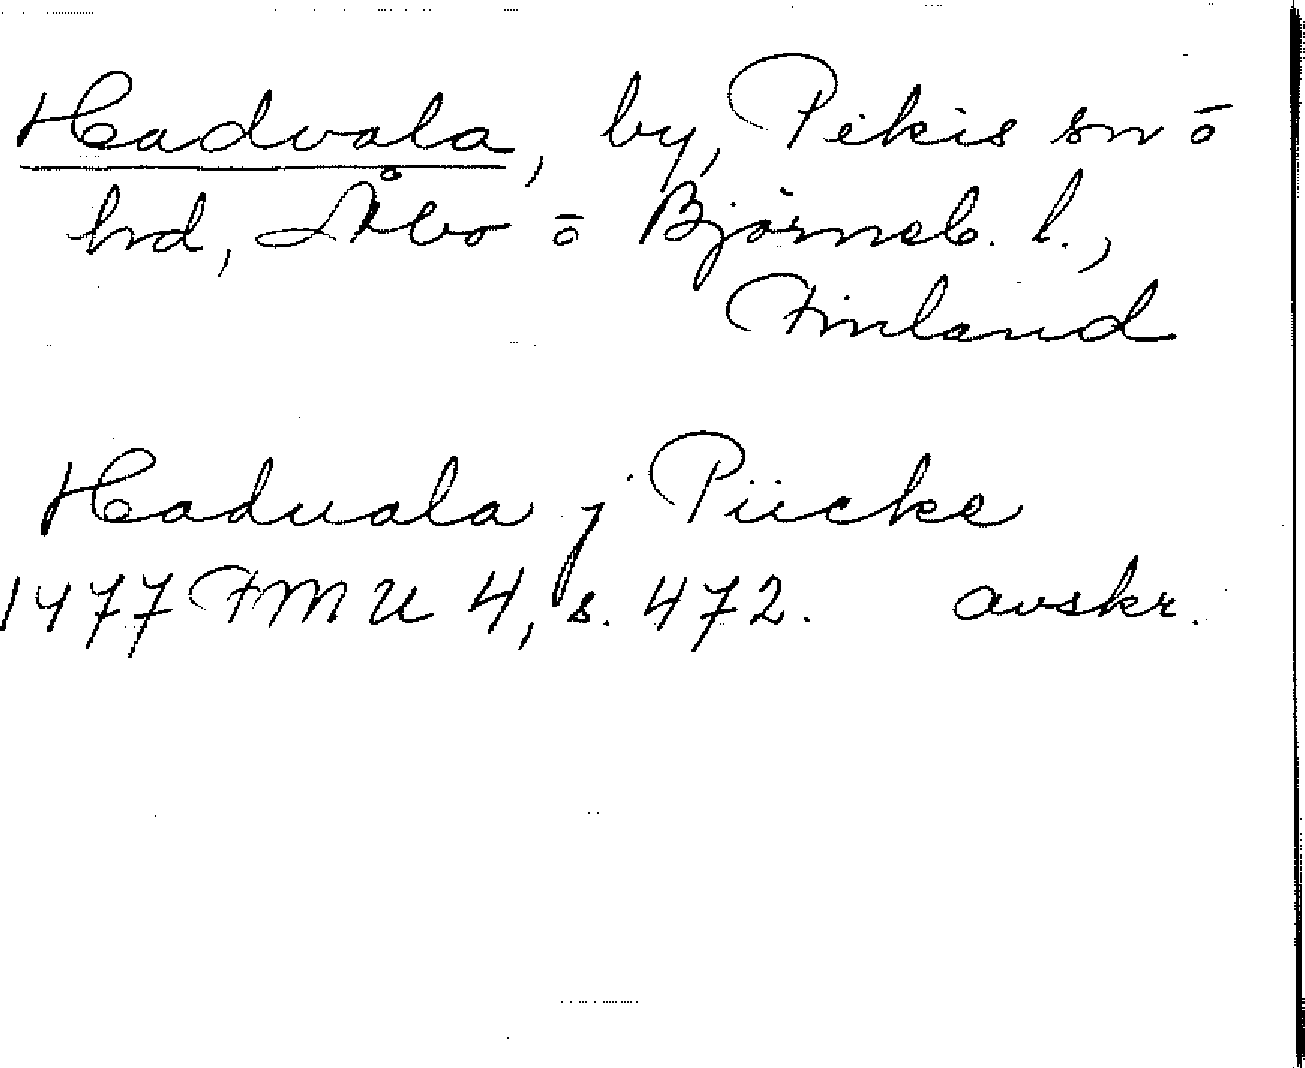 Hadvala, by, Pikis sn ō
hd, Åbo ō Björneb. l.,
Finland
Haduala j Piicke
1477 FMU 4, s. 472. avskr.